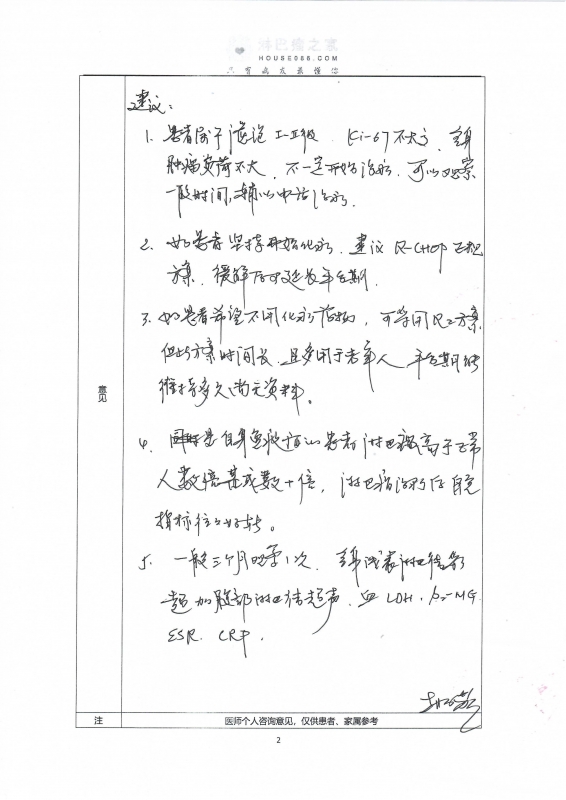 淋巴瘤之家
HOUSE086.COM
只有病友最懂你
建议：
1. 患者属于滤泡 I-II级，Ki-67不大，全身
肿瘤负荷不大，不一定开始治疗，可以观察
一段时间，辅以中药治疗。
2. 如患者坚持开始化疗，建议 R-CHOP 正规
方案，缓解后可延长平台期。
3. 如患者希望不用化疗药物，可采用R2方案
但此方案时间长，且多用于老年人，平台期能
维持多久尚无资料。
4. 同时患自身免疫性的患者淋巴瘤高于正常
人数倍甚或数十倍，淋巴瘤治疗后自免
指标往往好转。
5. 一般三个月观察1次，全身浅表淋巴结彩
超加腹部淋巴结超声，血LDH、β2-MG
ESR、CRP。
意见
注
医师个人咨询意见，仅供患者、家属参考
2